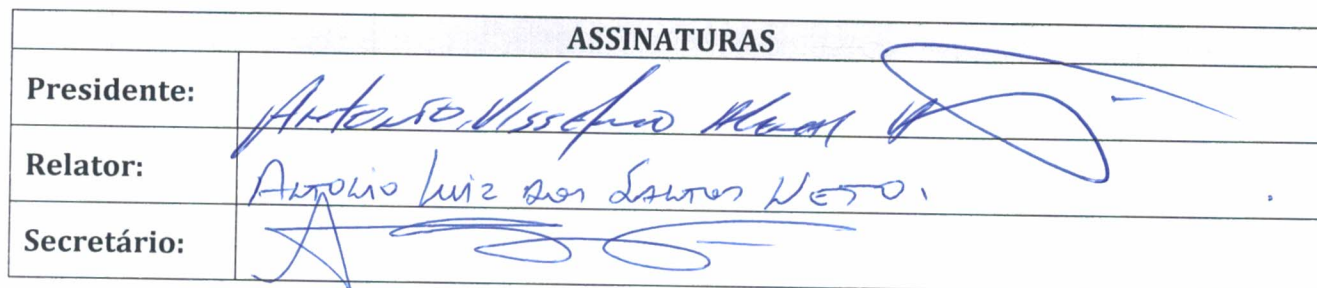 ASSINATURAS
Presidente: Antonio
Relator: Antonio Luiz dos Santos Neto.
Secretário: